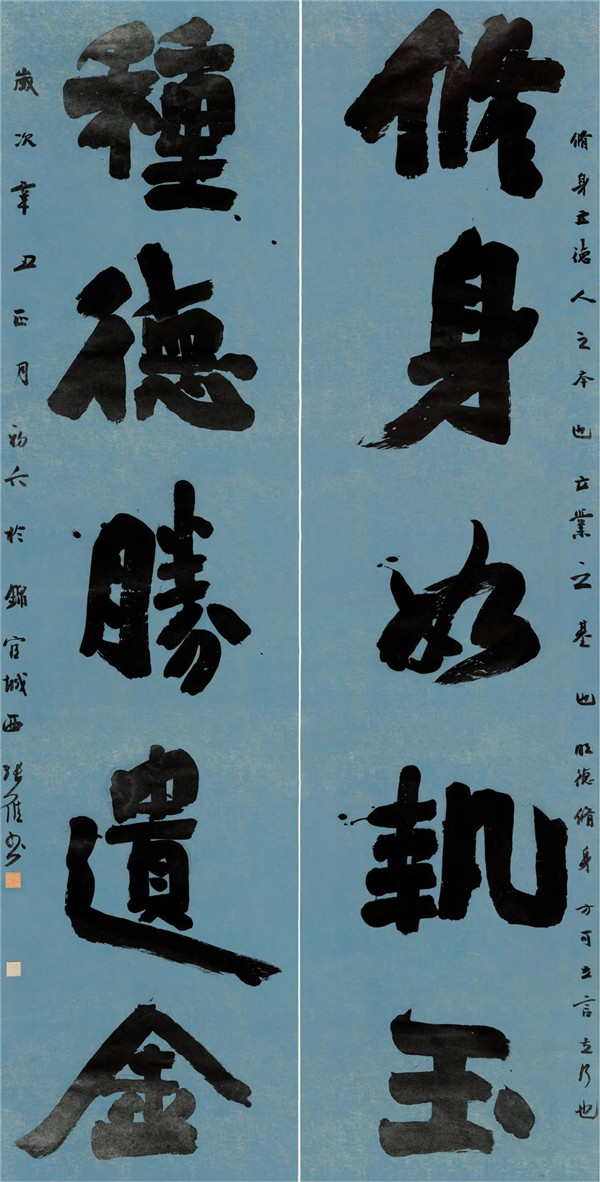 脩身立德人之本也立業之基也德脩身方可立言立行也
修身如執玉
種德勝遺金
歲次辛丑正月初六於錦官城西張書